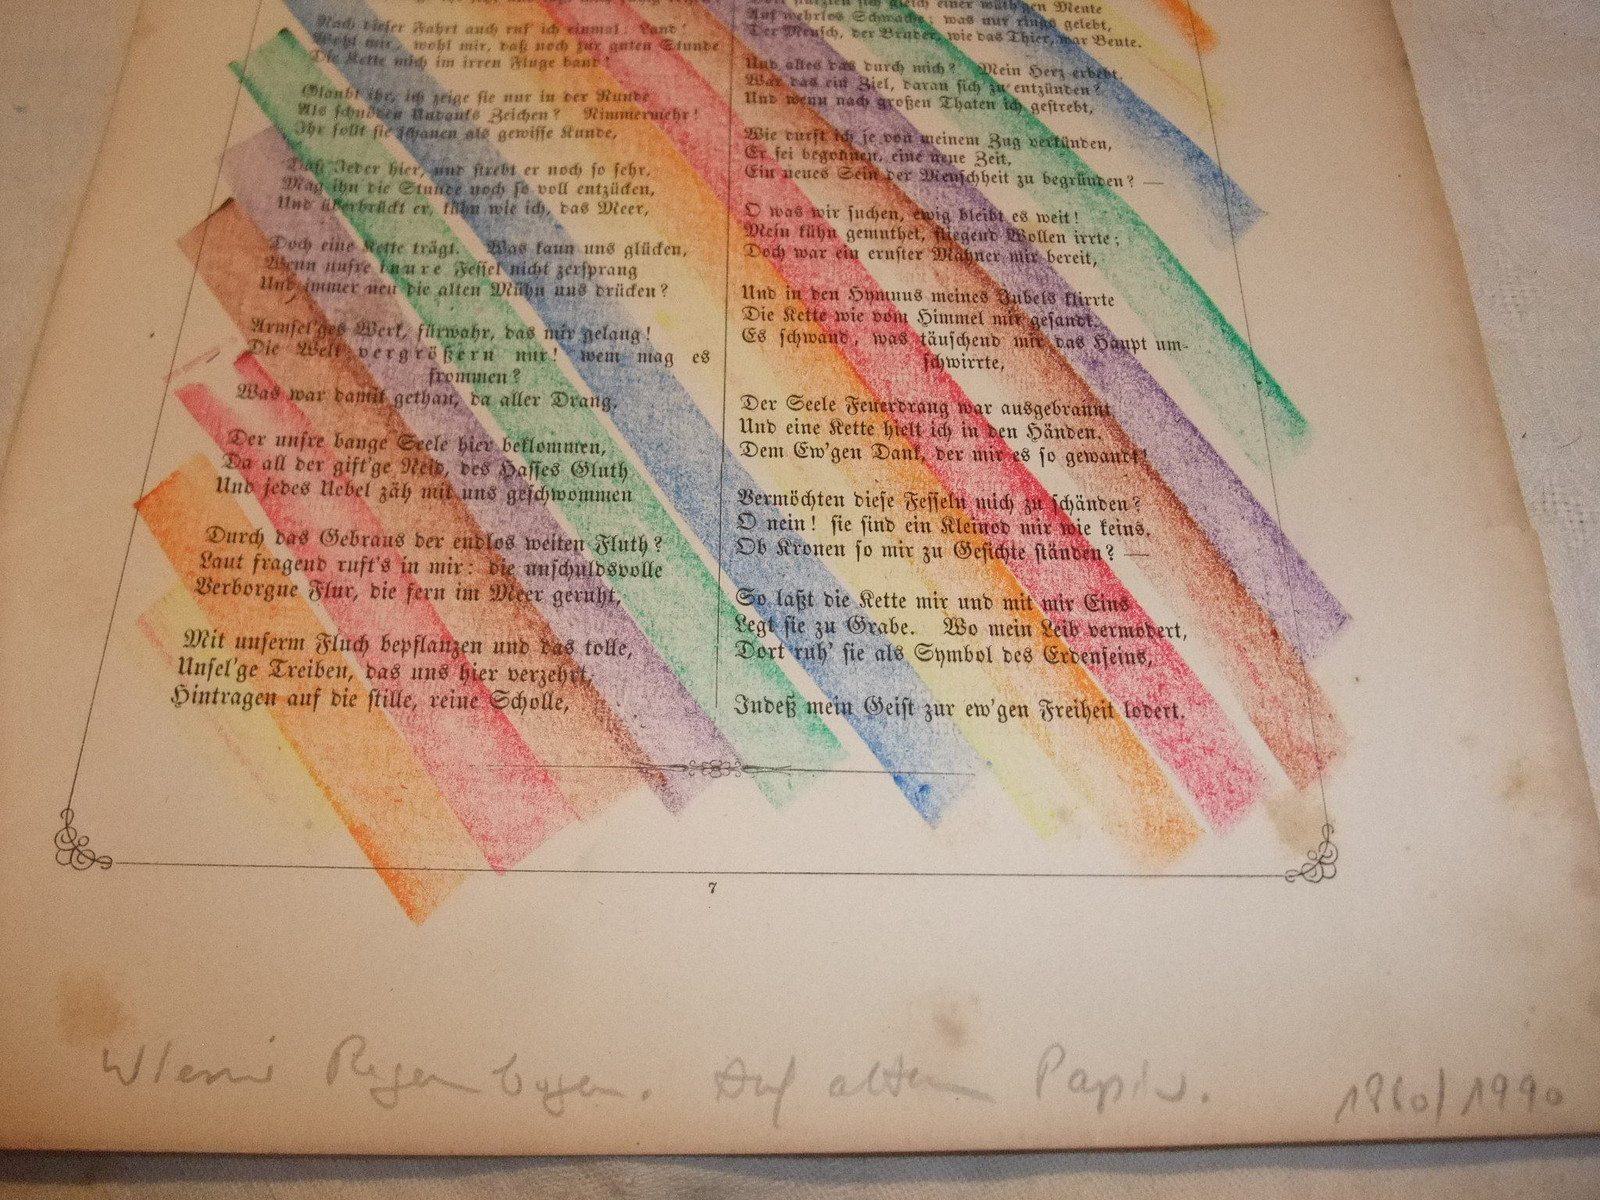 Nach dieser Fahrt auch ruf' ich einmal: Land!
Wohl mir, wohl mir, daß noch zur guten Stunde
Die Kette mich im irren Fluge band!
Glaubt ihr, ich zeige sie nur in der Runde
Als schnöden Undanks Zeichen? Nimmermehr!
Ihr sollt sie schauen als gewisse Kunde,
Daß Jeder hier, und strebt er noch so sehr,
Mag ihn die Stunde noch so voll entzücken,
Und überbrückt er, kühn wie ich, das Meer,
Doch eine Kette trägt. Was kann uns glücken,
Wenn unsre innre Fessel nicht zersprang
Und immer neu die alten Mühn uns drücken?
Armsel'ges Werk, fürwahr, das mir gelang!
Die Welt vergrößern nur! wem mag es
frommen?
Was war damit gethan, da aller Drang,
Der unsre bange Seele hier beklommen,
Da all der gift'ge Neid, des Hasses Gluth
Und jedes Uebel zäh mit uns geschwommen
Durch das Gebraus der endlos weiten Fluth?
Laut fragend ruft's in mir: die unschuldsvolle
Verborgne Flur, die fern im Meer geruht,
Mit unserm Fluch bepflanzen und das tolle,
Unsel'ge Treiben, das uns hier verzehrt,
Hintragen auf die stille, reine Scholle,
stürzten sich gleich einer wüth'gen Meute
Auf wehrlos Schwache; was nur rings gelebt,
Der Mensch, der Bruder, wie das Thier, war Beute.
Und alles das durch mich? Mein Herz erbebt.
War das ein Ziel, daran sich zu entzünden?
Und wenn nach großen Thaten ich gestrebt,
Wie durft ich je von meinem Zug verkünden,
Er sei begonnen, eine neue Zeit,
Ein neues Sein der Menschheit zu begründen? —
O was wir suchen, ewig bleibt es weit!
Mein kühn gemuthet, fliegend Wollen irrte;
Doch war ein ernster Mahner mir bereit,
Und in den Hymnus meines Jubels klirrte
Die Kette wie vom Himmel mir gesandt.
Es schwand, was täuschend mir das Haupt um-
schwirrte,
Der Seele Feuerdrang war ausgebrannt,
Und eine Kette hielt ich in den Händen.
Dem Ew'gen Dank, der mir es so gewandt!
Vermöchten diese Fesseln mich zu schänden?
O nein! sie sind ein Kleinod mir wie keins.
Ob Kronen so mir zu Gesichte ständen? —
So laßt die Kette mir und mit mir Eins
Legt sie zu Grabe. Wo mein Leib vermodert,
Dort ruh' sie als Symbol des Erdenseins,
Indeß mein Geist zur ew'gen Freiheit lodert.
7
Regenbogen. Auf altem Papier. 1860/1990